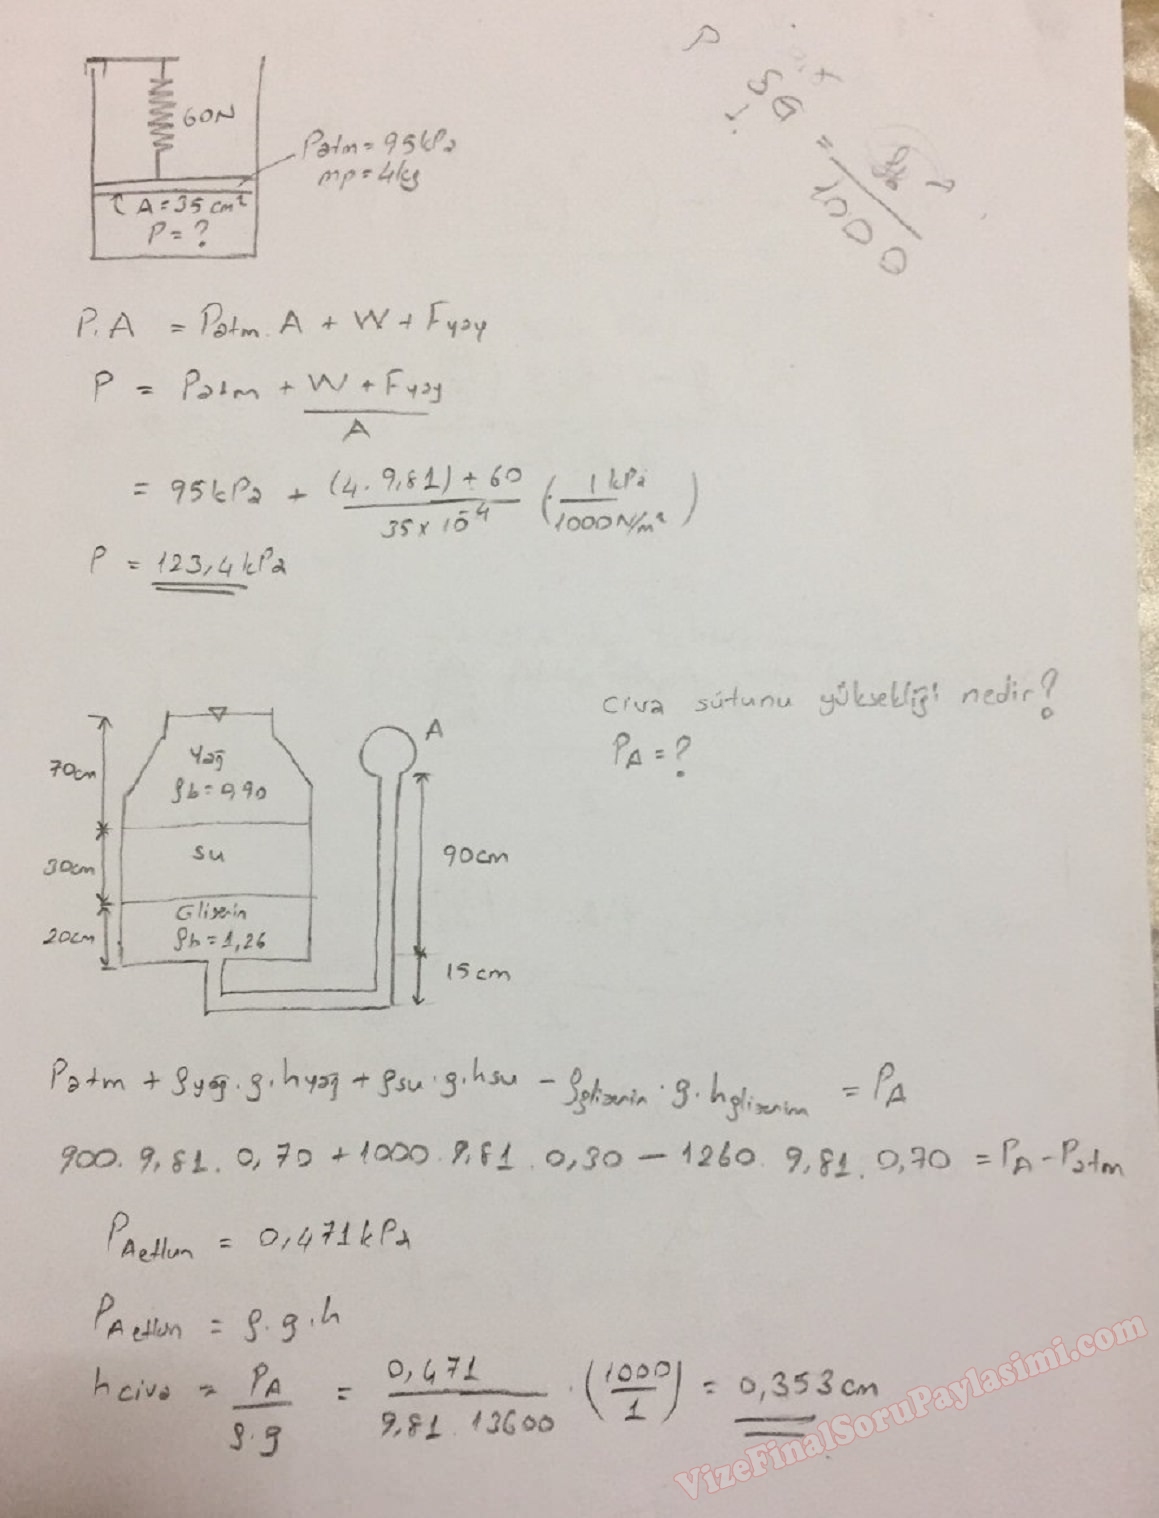 60N
Patm = 95kPa
mp = 4kg
A = 35 cm²
P = ?
P
SG = 
1000
P.A = Patm. A + W + Fyay
P = Patm + W + Fyay / A
= 95kPa + (4. 9,81) + 60 / 35 x 10⁻⁴ (1 kPa / 1000N/m²)
P = 123,4kPa
civa sütunu yüksekliği nedir?
PA = ?
A
70cm
Yağ
ρb = 0,90
30cm
su
90cm
20cm
Gliserin
ρb = 1,26
15cm
Patm + ρyağ. g. hyağ + ρsu. g. hsu - ρgliserin. g. hgliserin = PA
900. 9,81. 0,70 + 1000. 9,81. 0,30 - 1260. 9,81. 0,70 = PA - Patm
PAetkın = 0,471kPa
PAetkın = ρ. g. h
hciva = PA / ρ.g = 0,471 / 9,81. 13600 . (1000 / 1) = 0,353cm
VizeFinalSoruPaylasimi.com